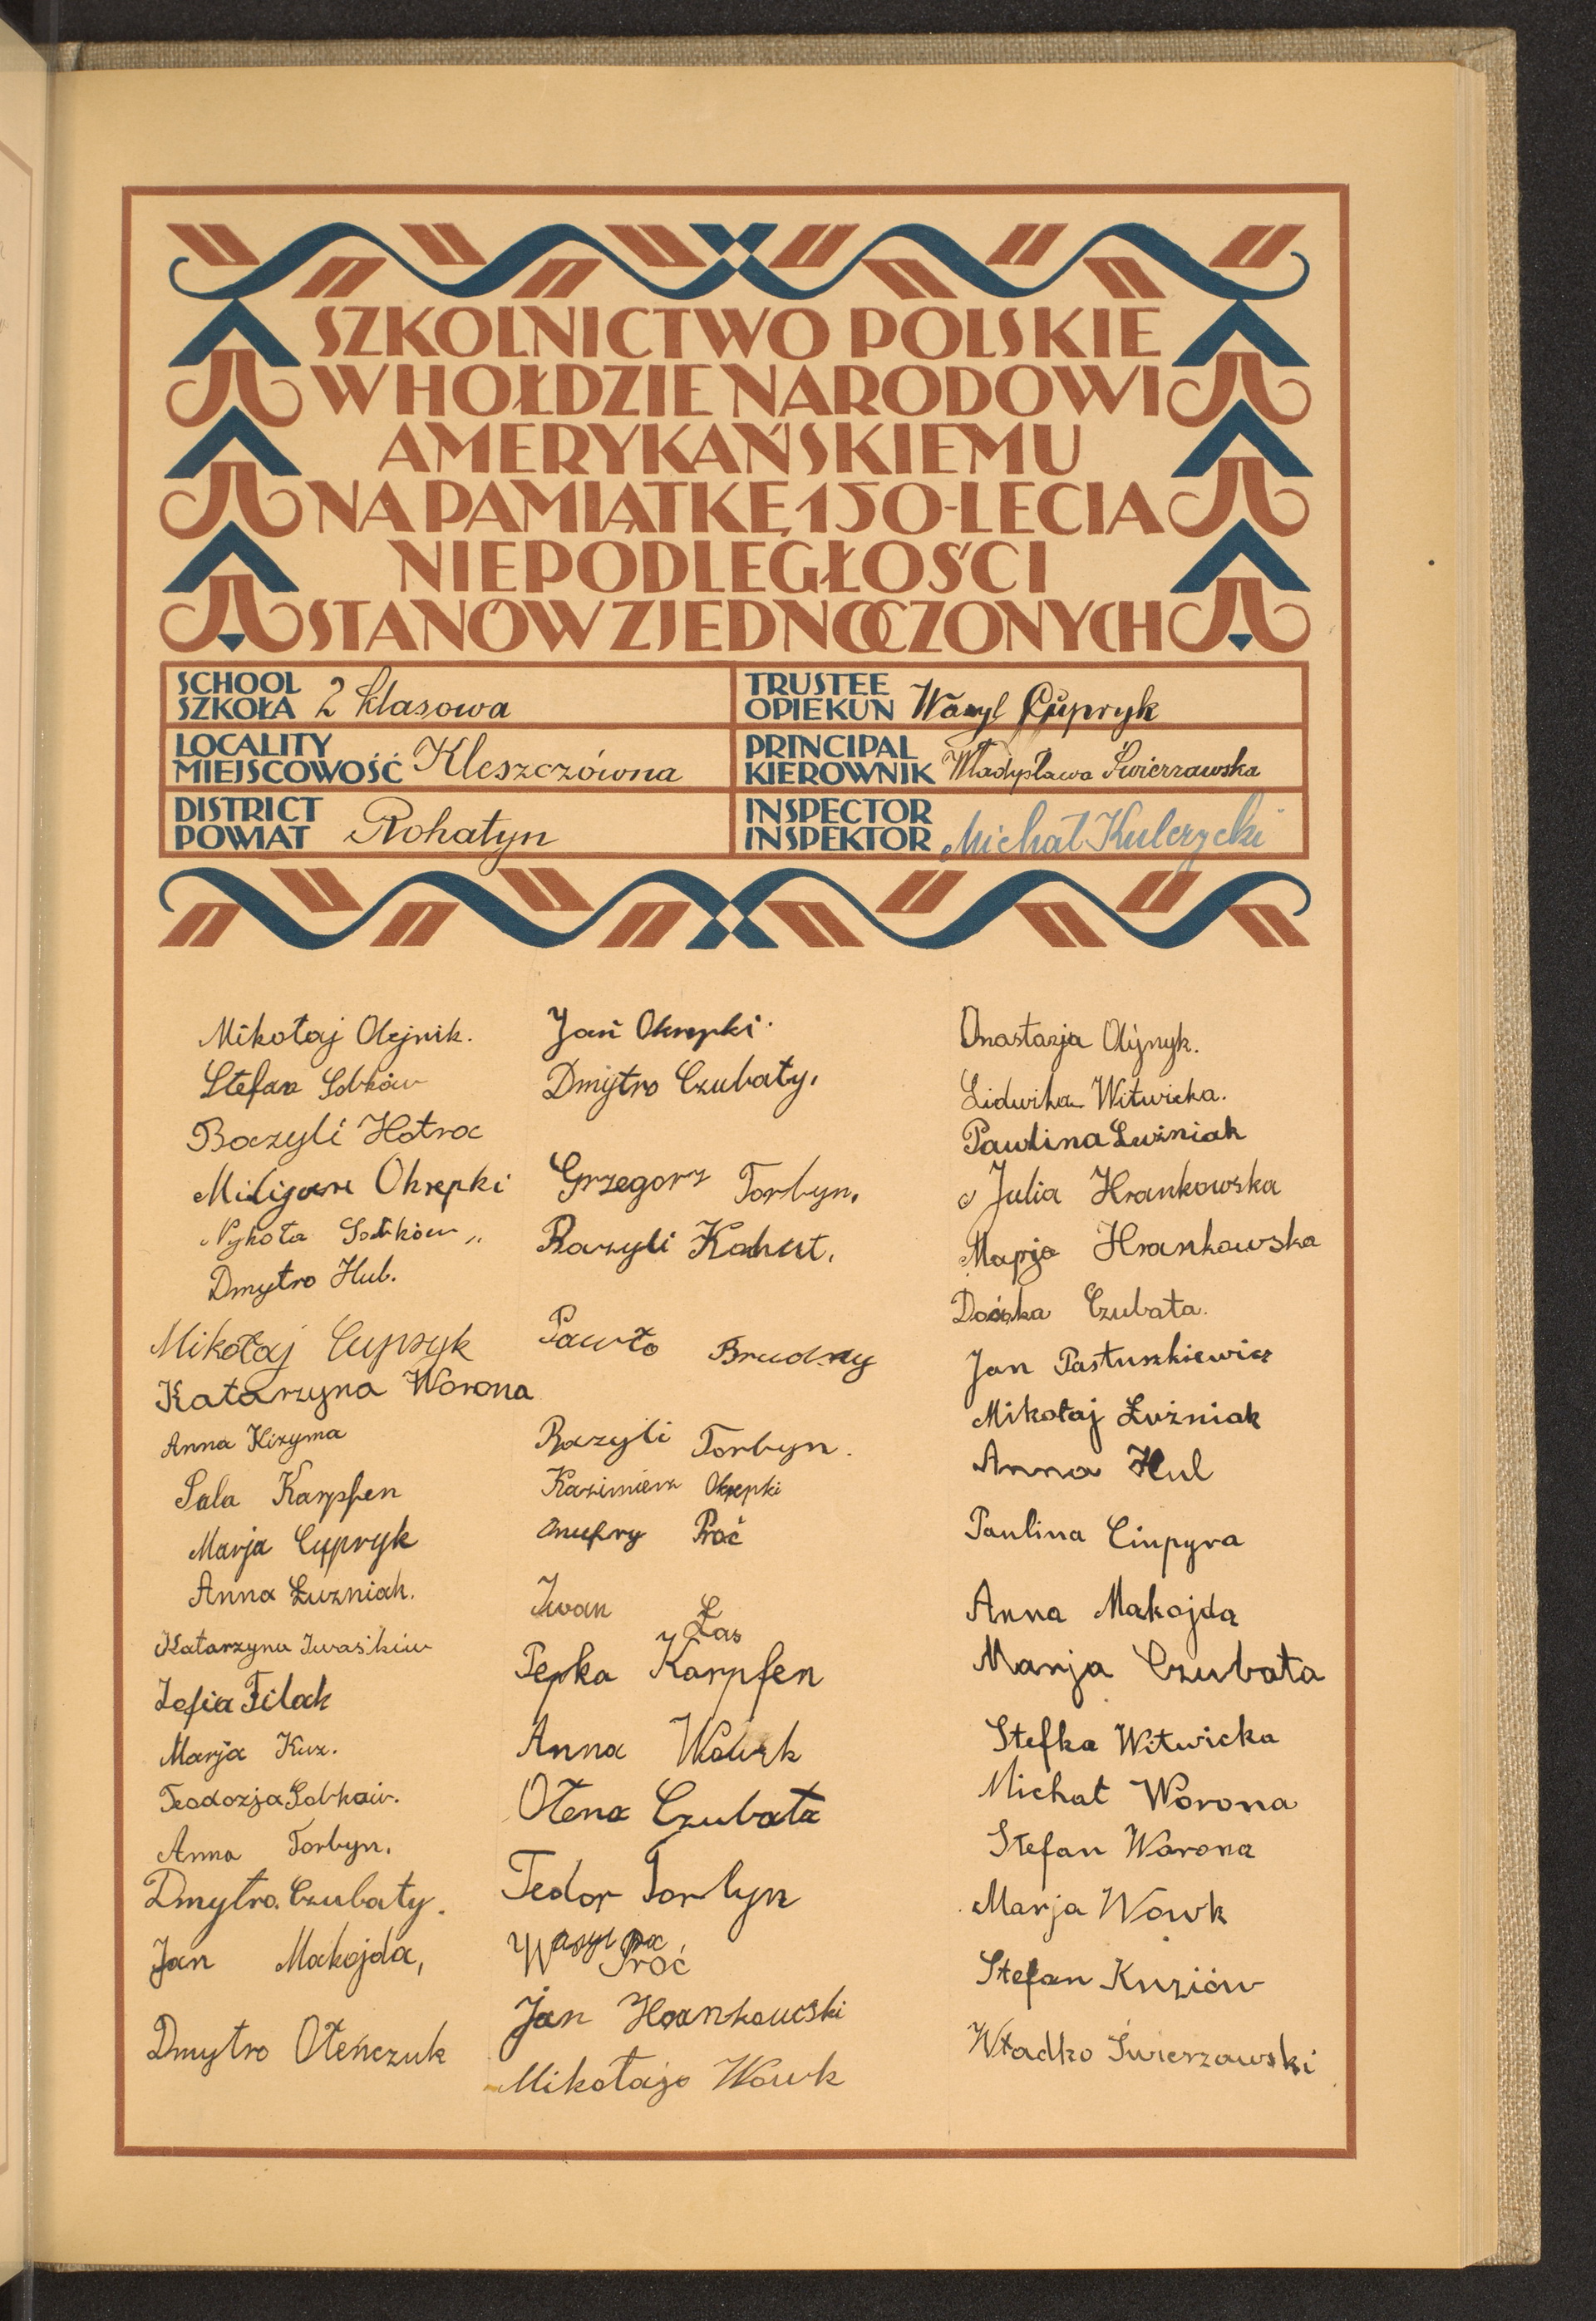 SZKOLNICTWO POLSKIE
W HOŁDZIE NARODOWI
AMERYKAŃSKIEMU
NA PAMIĄTKĘ 150-LECIA
NIEPODLEGŁOŚCI
STANÓW ZJEDNOCZONYCH
SCHOOL
SZKOŁA 2 klasowa
TRUSTEE
OPIEKUN Wasyl Cupryk
LOCALITY
MIEJSCOWOŚĆ Kleszczówna
PRINCIPAL
KIEROWNIK Władysława Świerzawska
DISTRICT
POWIAT Rohatyn
INSPECTOR
INSPEKTOR Michał Kulczycki
Mikołaj Olejnik.
Stefan Sobków
Bazyli Hotra
Okrepki
Sobków
Dmytro Hul.
Mikołaj Cupryk
Katarzyna Worona
Anna Kizyma
Sala Karpfen
Marja Cupryk
Anna Łuzniak.
Katarzyna Iwaśków
Zofia Filak
Marja Kuz.
Teodozja Sobków.
Anna Torbyn.
Dmytro. Czubaty.
Jan Makojda,
Dmytro Ołeńczuk
Jan Okrepki.
Dmytro Czubaty.
Grzegorz Torbyn.
Bazyli Kohut.
Pawło Brudny
Bazyli Torbyn.
Kazimierz Okrepki
Onufry Proć
Iwan Łas
Pepka Karpfen
Anna Wowk
Ołena Czubata
Fedor Torbyn
Wasyl Proć
Jan Hrankowski
Mikołajo Wowk
Anastazja Olijnyk.
Lidwika Witwicka.
Pawlina Luźniak
Julia Hrankowska
Marja Hrankowska
Dośka Czubata.
Jan Pastuszkiewicz
Mikołaj Łuźniak
Anna Hul
Paulina Ciupyra
Anna Makojda
Marja Czubata
Stefka Witwicka
Michał Worona
Stefan Worona
Marja Wowk
Stefan Kuziów
Władko Świerzawski